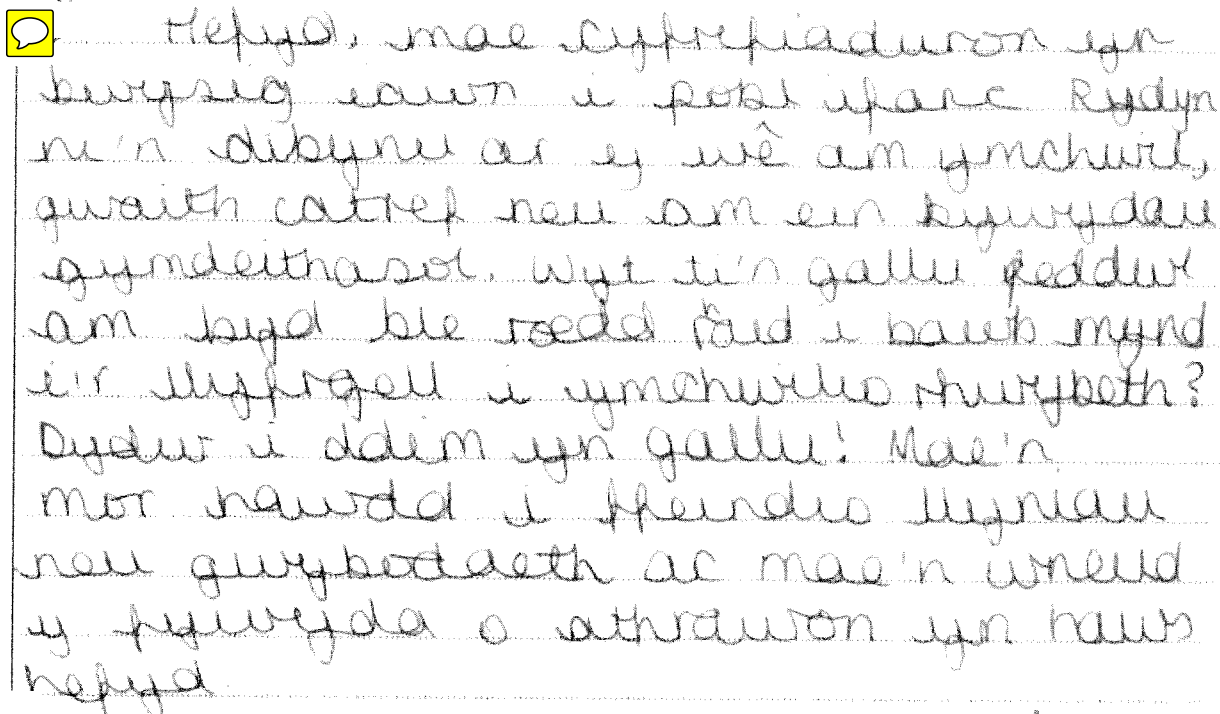 Hefyd, mae cyfrefiaduron yn
bwysig iawn i pobl ifanc Rydyn
ni'n dibynu ar y wê am ymchwil,
gwaith catref neu am ein bywydau
gymdeithasol. Wyt ti'n gallu feddwl
am byd ble roedd raid i bawb mynd
i'r llyfrgell i ymchwilio rhwybeth?
Dydw i ddim yn gallu! Mae'n
mor hawdd i ffeindio lluniau
neu gwybodaeth ac mae'n wneud
y fywyda o athrawon yn haws
hefyd